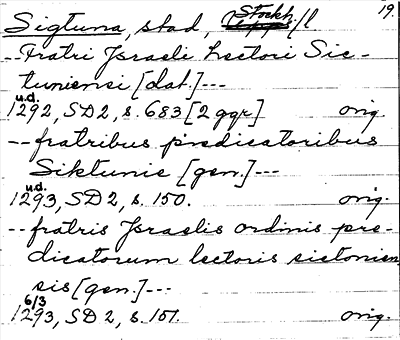 19.
Sigtuna, stad, Stockh/l
-- Fratri Israeli lectori Sic-
tuniensi [dat.] ---
u.d.
1292, SD 2, s. 683 [2 ggr] orig.
-- fratribus predicatoribus
Siktunie [gen.] ---
u.d.
1293, SD 2, s. 150. orig.
-- fratris Israelis ordinis pre-
dicatorum lectoris sictonien
sis [gen.] ---
6/3
1293, SD 2, s. 151. orig.